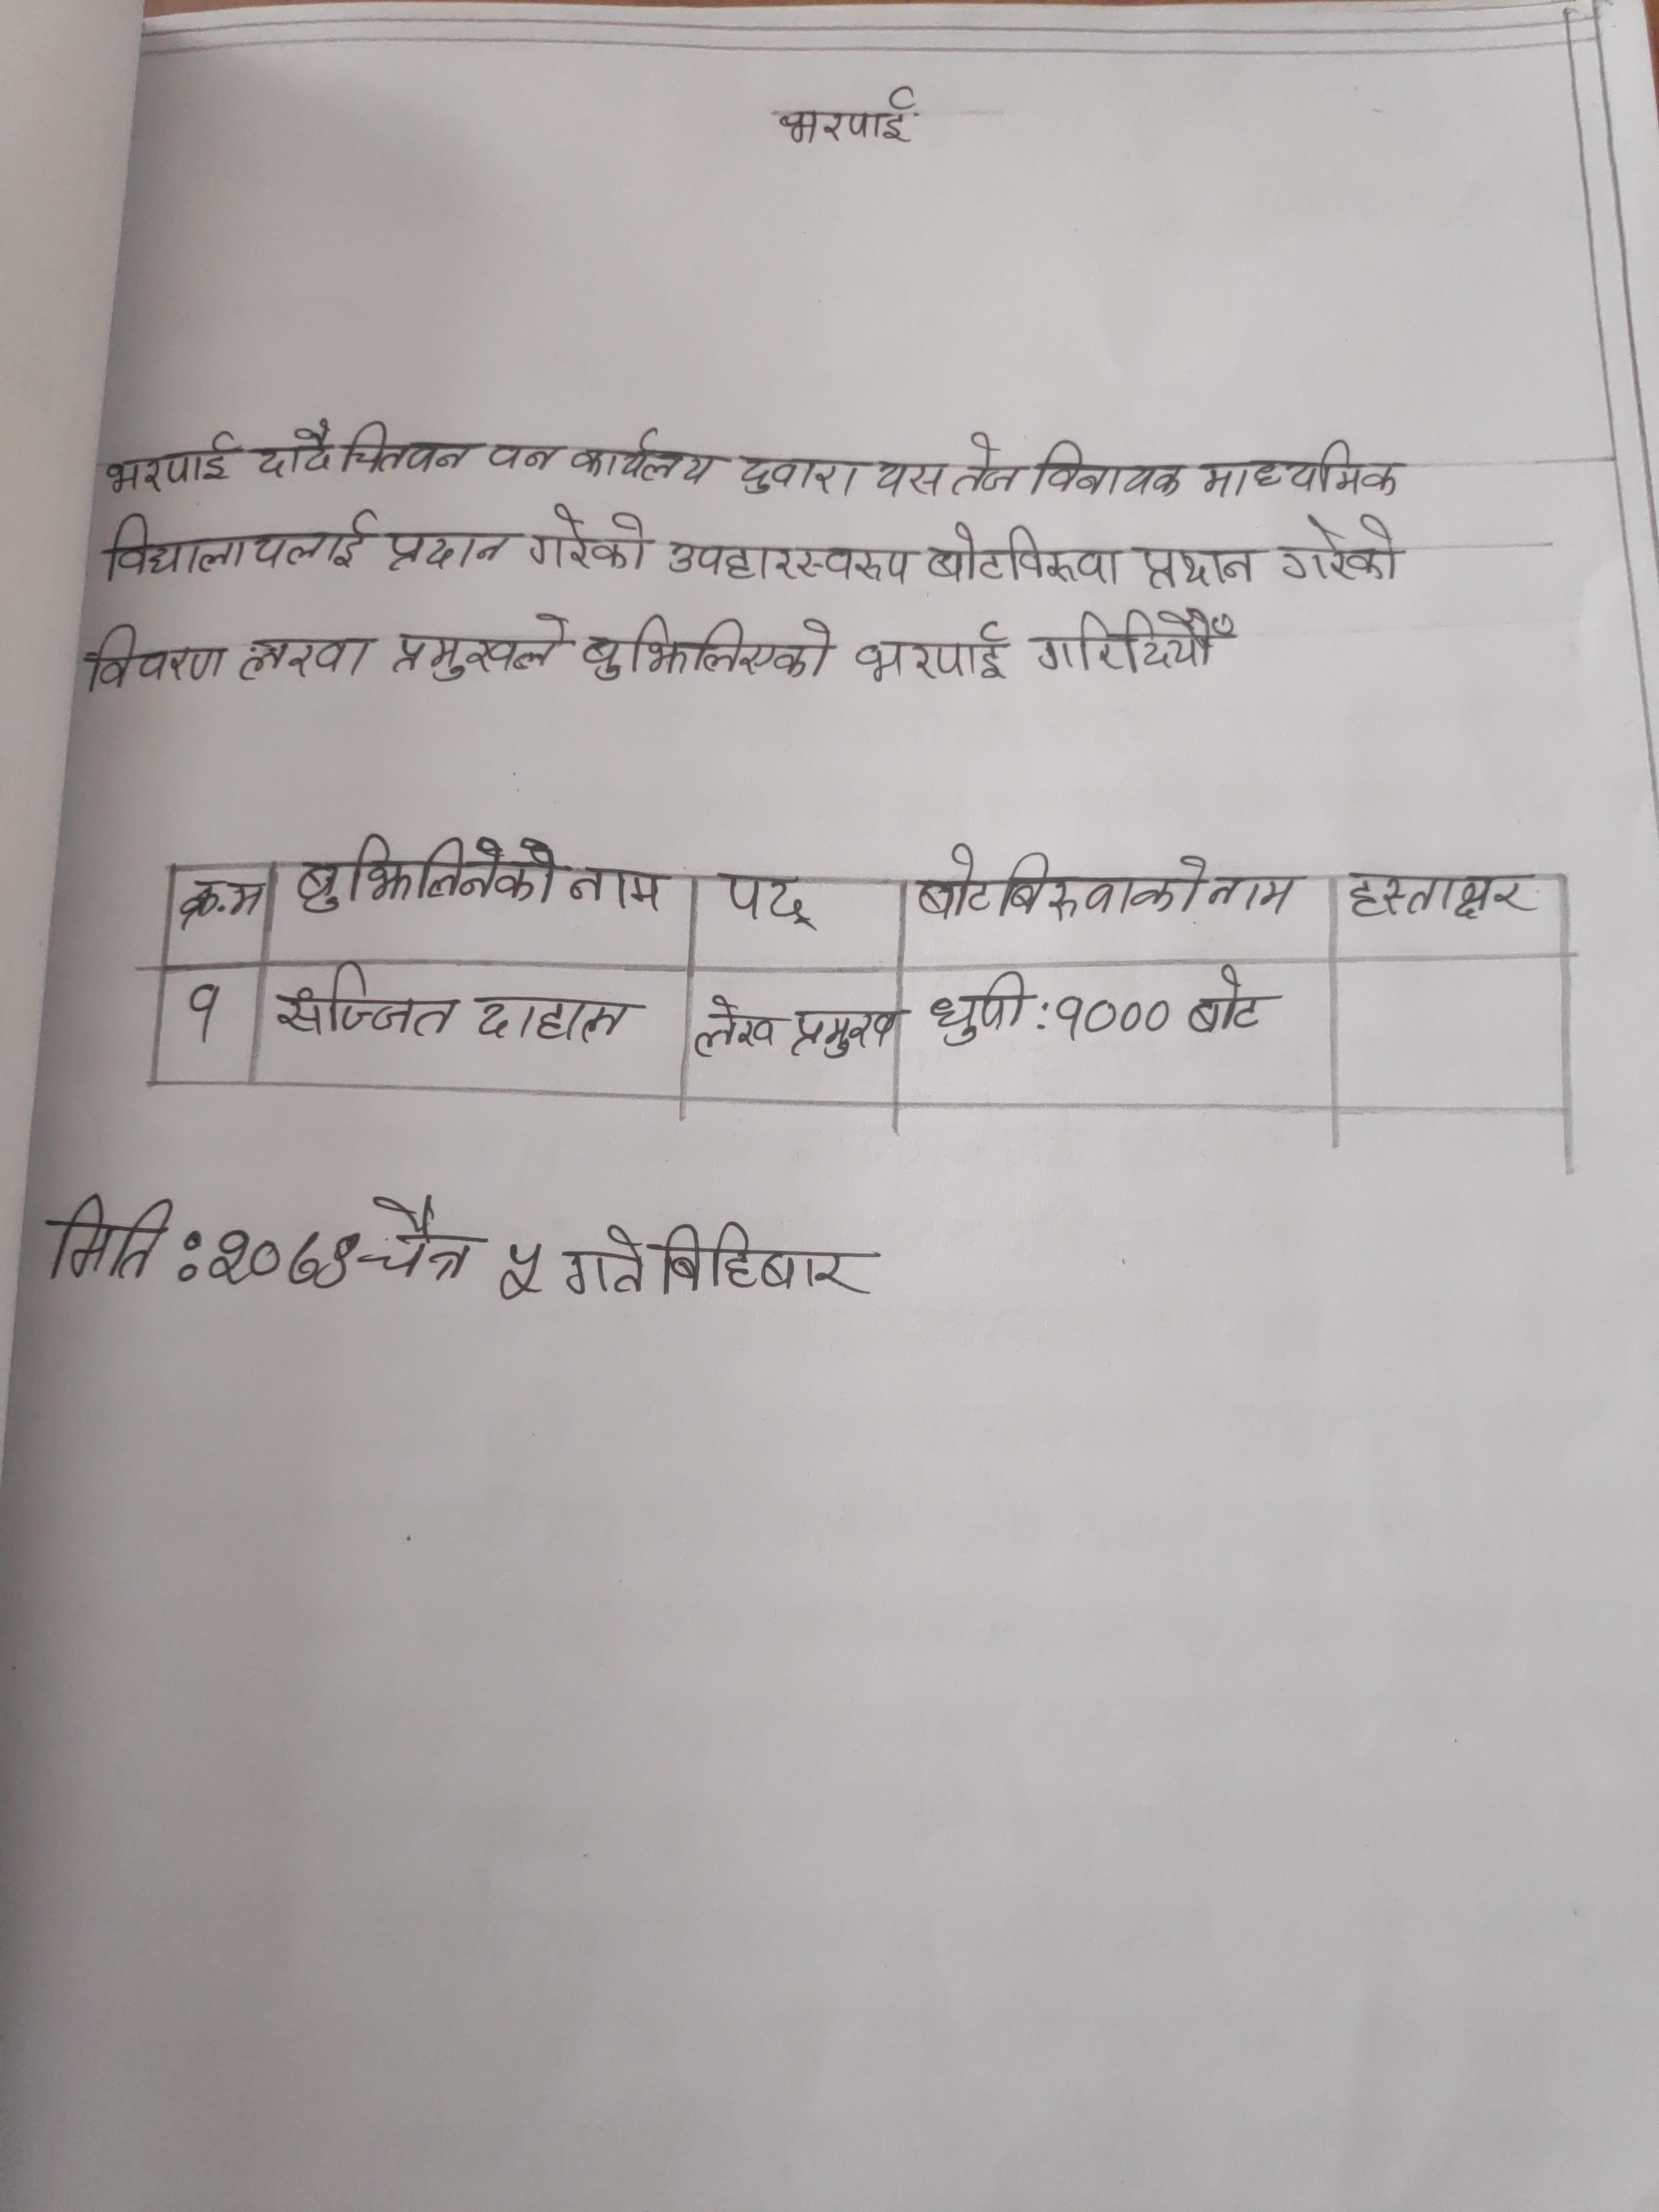 भरपाई
भरपाई दादै चितवन वन कार्यलय दुवारा यस तेज विनायक माध्यमिक
विद्यालायलाई प्रदान गरेको उपहारस्वरुप बोटविरुवा प्रदान गरेको
विवरण लखा प्रमुखले बुझिलिएको भरपाई गरिदियौँ
क्र.म बुझिलिनेको नाम पद् बोटबिरुवाको नाम हस्ताक्षर
१ सज्जित दाहाल लेख प्रमुख धुपी : १००० बोट
मिति : २०७४ चैत्र ५ गते बिहिबार